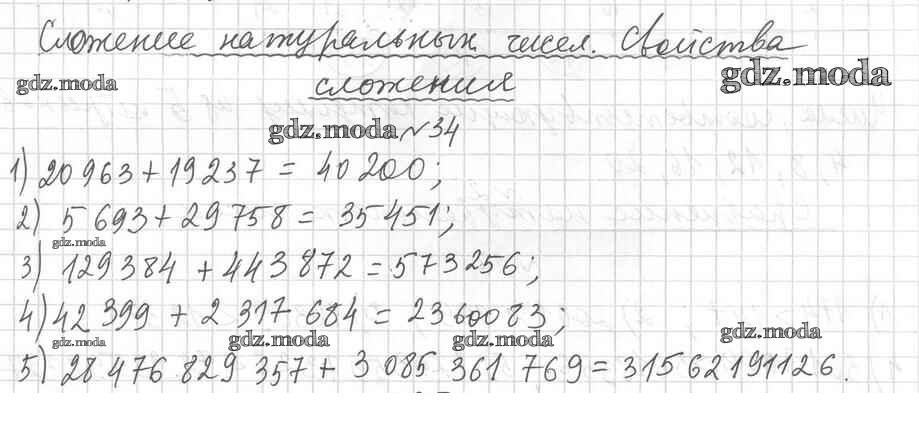 Сложение натуральных чисел. Свойства
gdz.moda сложения gdz.moda
gdz.moda №34
1) 20 963 + 19 237 = 40 200;
2) 5 693 + 29 758 = 35 451;
gdz.moda
3) 129 384 + 443 872 = 573 256;
4) 42 399 + 2 317 684 = 2360083;
gdz.moda gdz.moda gdz.moda gdz.moda
5) 28 476 829 357 + 3 085 361 769 = 31562191126.